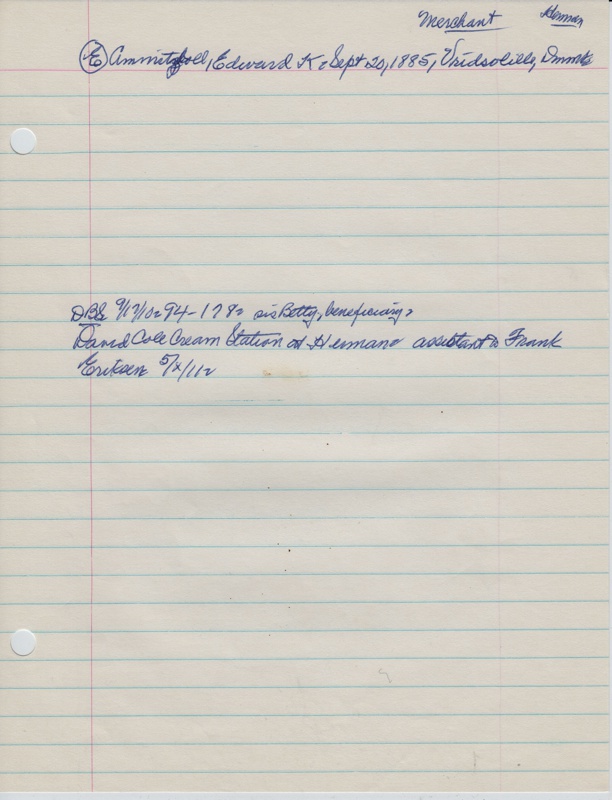 Merchant Herman
(E) Ammitzboll, Edward K. Sept 20, 1885, Vridsolille, Dnmk
DBS 94-178. sis Betty, beneficiary.
David Cole Cream Station at Herman. assistant to Frank
Eriksen 5/x/11.